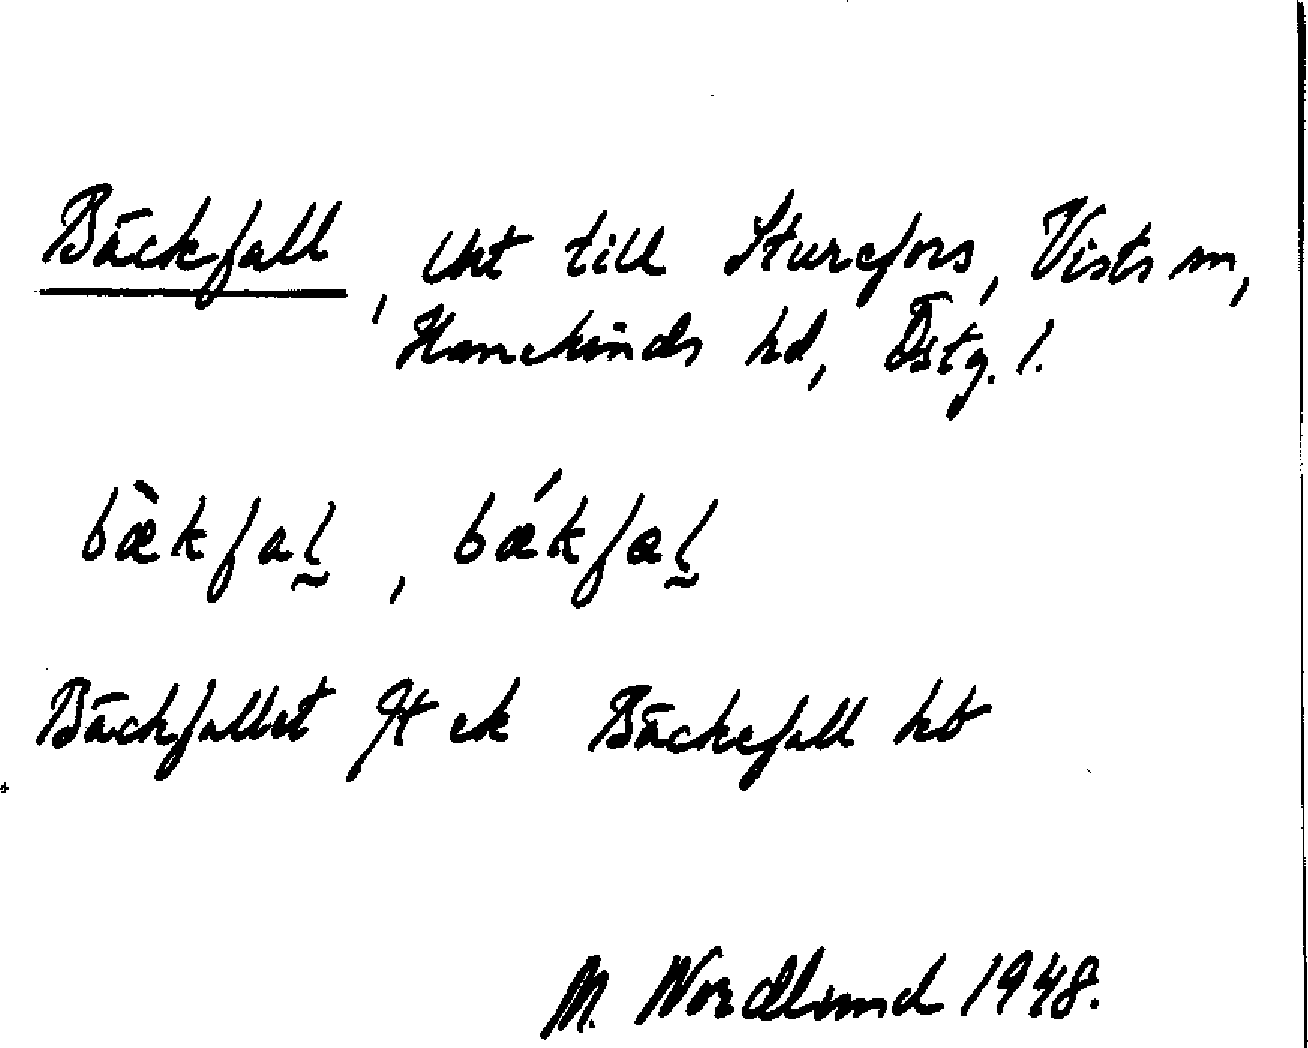 Bäckfall, lht till Sturefors, Vists sn,
Hanekinds hd, Östg. l.
bæ̀kfal̰, bǽkfal̰
Bäckfallet jt ek Bäckefall hb
M. Nordlund 1948.